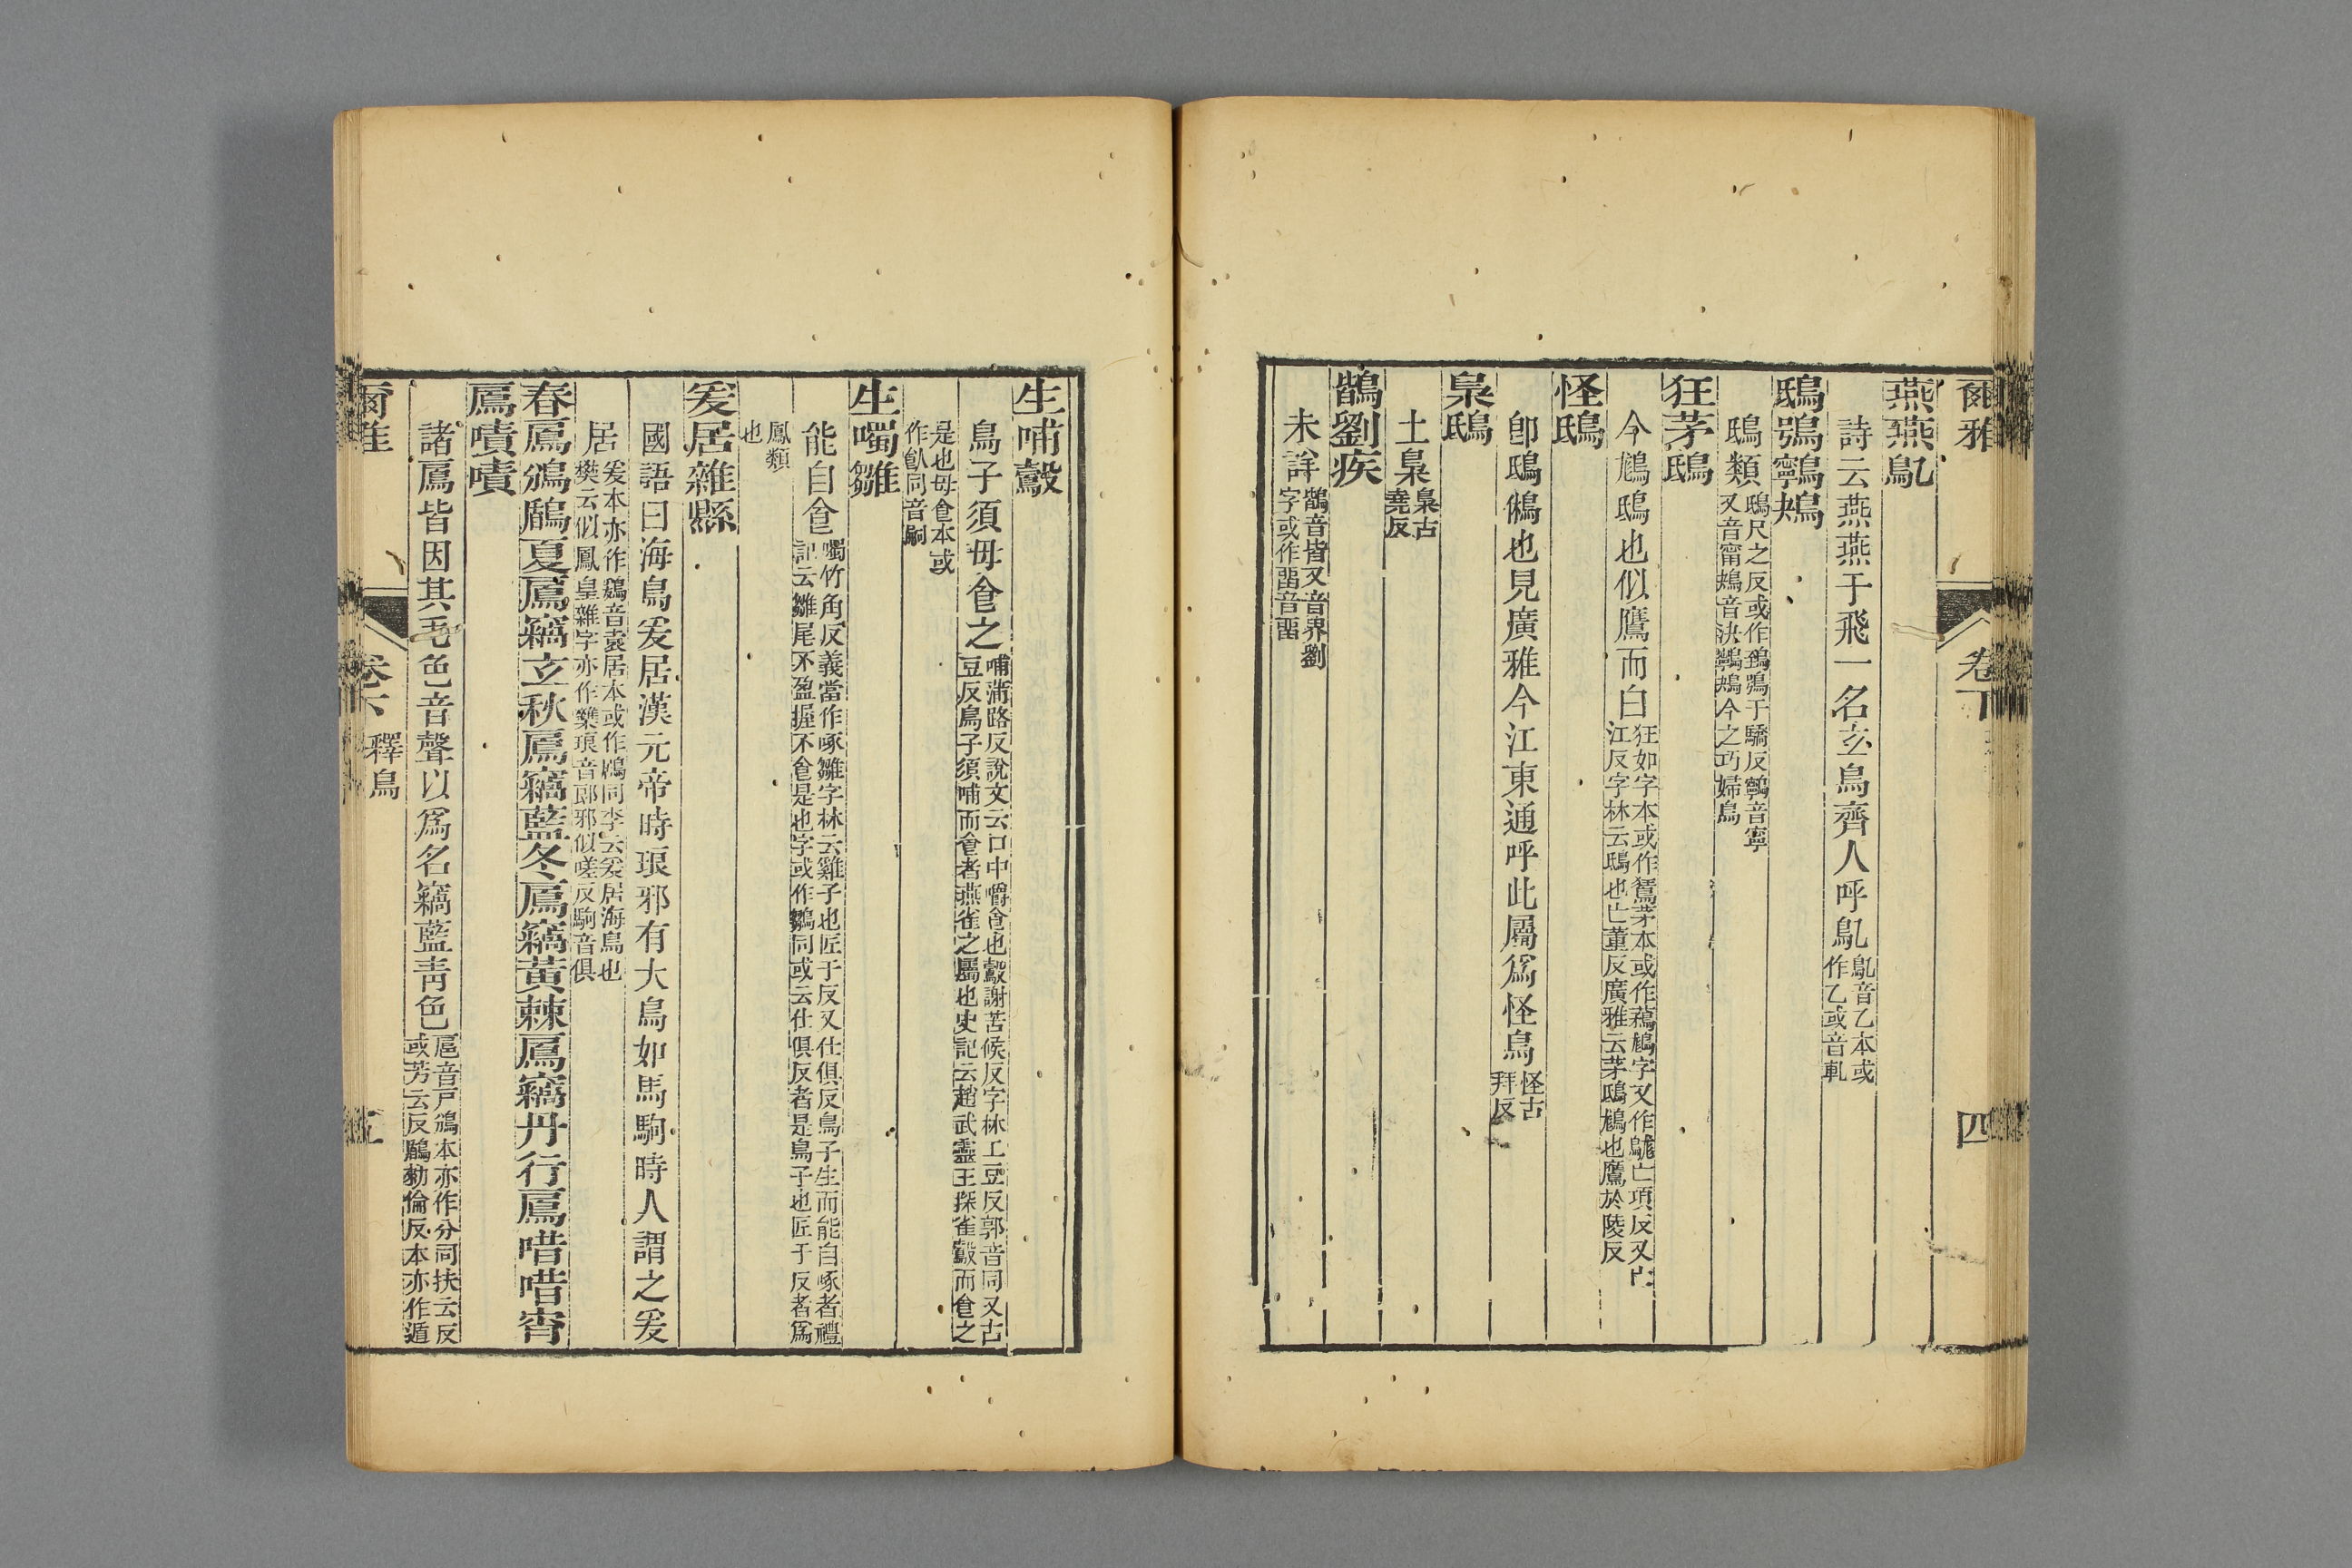 爾雅 卷下 四
燕燕鳦
詩云燕燕于飛一名玄鳥齊人呼鳦鳦音乙本或作乙或音軋
鴟鴞鸋鴂
鴟類鴟尺之反或作鵄鴞于驕反鸋音寧又音甯鴂音決鸋鴂今之巧婦鳥
狂茅鴟
今鵵鴟也似鷹而白狂如字本或作鵟茅本或作鶜鵵字又作亡項反又亡江反字林云鴟也亡董反廣雅云茅鴟鵵也鷹於陵反
怪鴟
卽鴟鵂也見廣雅今江東通呼此屬爲怪鳥怪古拜反
梟鴟
土梟梟古堯反
鶛劉疾
未詳鶛音皆又音界劉字或作畱音畱
生哺鷇
鳥子須毋飤之哺蒲路反說文云口中嚼飤也鷇謝苦候反字林工豆反郭音同又古豆反鳥子須哺而飤者燕雀之屬也史記云趙武靈王探雀鷇而飤之
是也毋飤本或作飤同音嗣
生噣雛
能自飤噣竹角反義當作啄雛字林云雞子也匠于反又仕俱反鳥子生而能自啄者禮記云雛尾不盈握不飤是也字或作鶵同或云仕俱反者是鳥子也匠于反者爲
鳳類也
爰居雜縣
國語曰海鳥爰居漢元帝時琅邪有大鳥如馬駒時人謂之爰
居爰本亦作鶢音袁居本或作鶋同李云爰居海鳥也樊云似鳳皇雜字亦作䉶琅音郎邪似嗟反駒音俱
春鳸鳻鶞夏鳸竊玄秋鳸竊藍冬鳸竊黃棘鳸竊丹行鳸唶唶宵
鳸嘖嘖
諸鳸皆因其毛色音聲以爲名竊藍靑色鳸音戸鳻本亦作分同扶云反或芳云反鶞勑倫反本亦作遁
爾雅 卷下 釋鳥 五